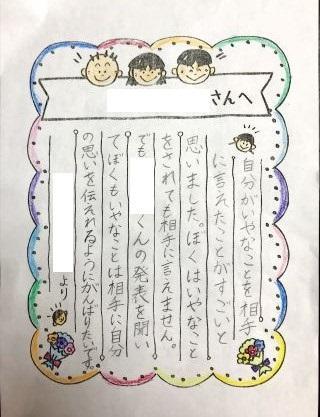 さんへ
自分がいやなことを相手
に言えたことがすごいと
思いました。ぼくはいやなこと
をされても相手に言えません。
でも くんの発表を聞い
てぼくもいやなことは相手に自分
の思いを伝えれるようにがんばりたいです。
より